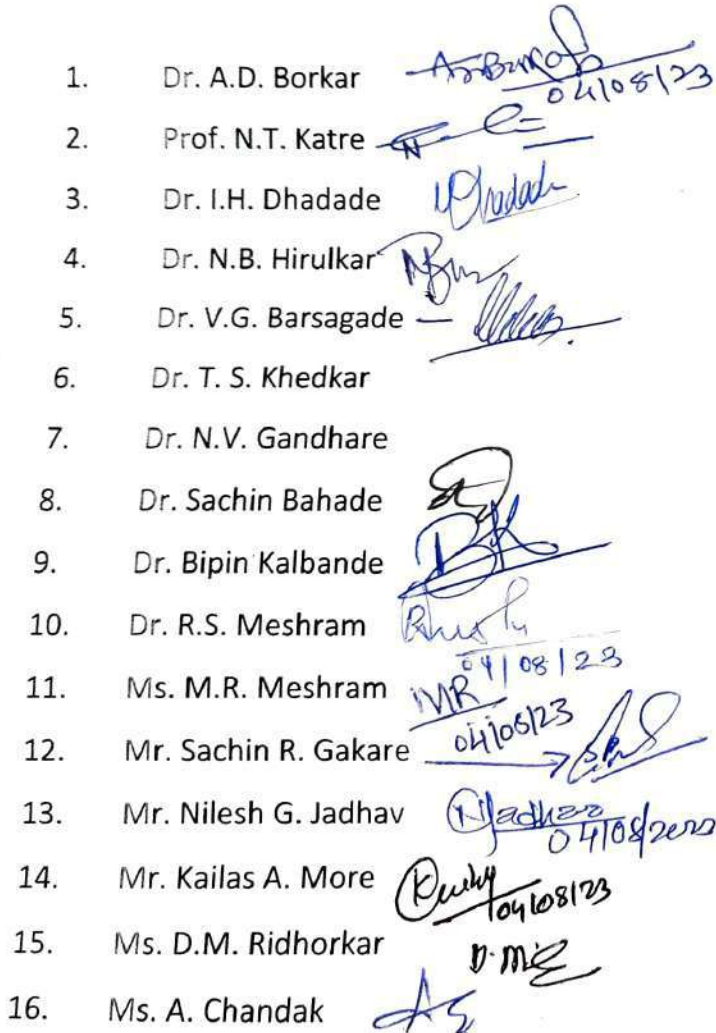 1. Dr. A.D. Borkar
04/08/23
2. Prof. N.T. Katre
3. Dr. I.H. Dhadade Dhadade
4. Dr. N.B. Hirulkar
5. Dr. V.G. Barsagade —
6. Dr. T. S. Khedkar
7. Dr. N.V. Gandhare
8. Dr. Sachin Bahade
9. Dr. Bipin Kalbande BK
10. Dr. R.S. Meshram
04/08/23
11. Ms. M.R. Meshram MR
04/08/23
12. Mr. Sachin R. Gakare
13. Mr. Nilesh G. Jadhav NJadhav
04/08/2023
14. Mr. Kailas A. More
04/08/23
15. Ms. D.M. Ridhorkar
16. Ms. A. Chandak